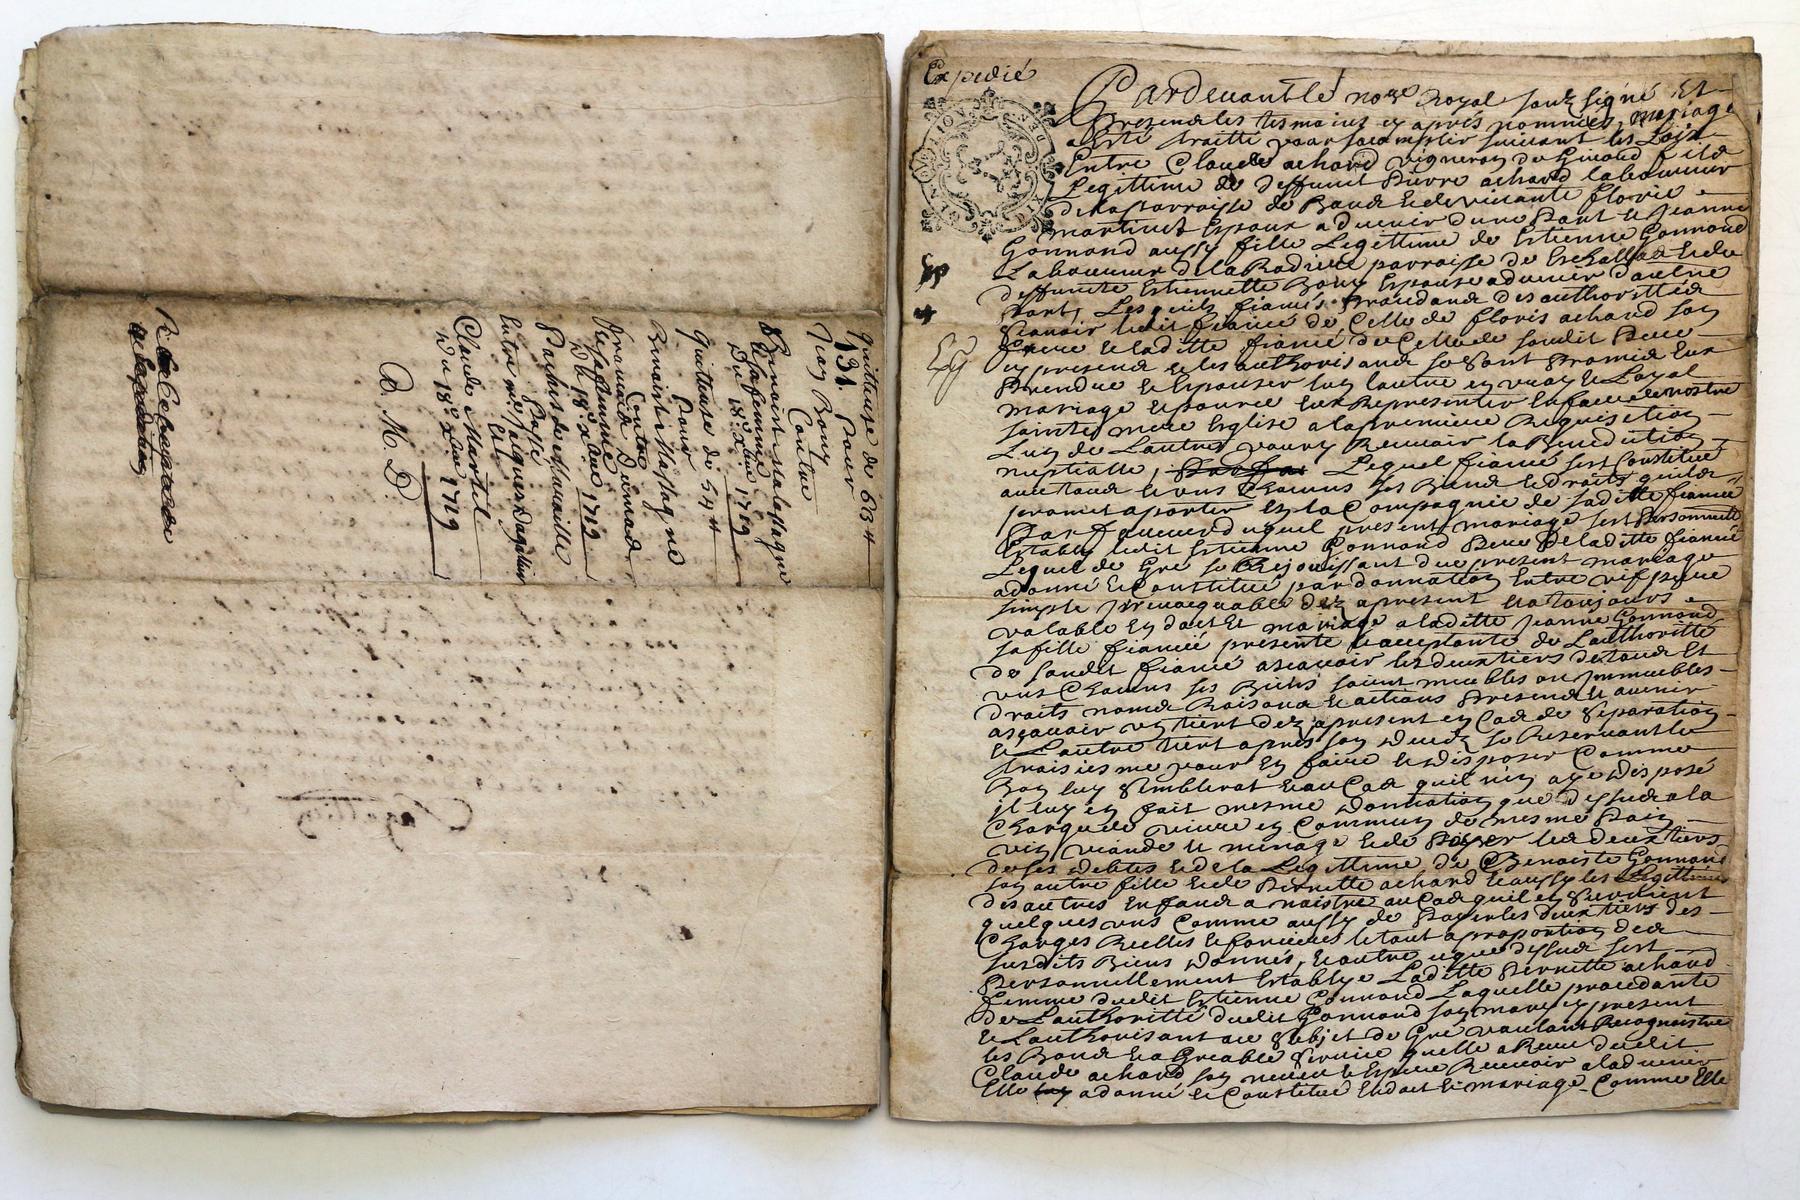 quittuse de 63 #
131 Pour
Jean Bony
Contre
Benoist salassagne
& sa femme
Du 18e xbre 1719
Quittuse de 54 #
Pour
Benoist Massagne
Contre
francois Dumad
& sa femme
Du 18e xbre 1719
Passé
Entre me Jacques Dagallier
Et
Claude Martel
Du 18e xbre 1719
D. M. D.
Dagallier
Expedié
GENERA DE LION
Pardevant le nore Royal soubz signé Et
presendz les tesmoins cy aprés nommés, mariage
a esté traitté pour sacomplir suivant les Loix
Entre Claude achard vigneron de Givord fils
Legittime de deffunct Pierre achard laboureur
de la parroisse de et de vivante florie
martinet Espoux advenir dune Part Et Jeanne
Gonnand aussy fille Legittime de Estienne Gonnand
Laboureur de la Rodiere parroisse de Eschallas et de
deffuncte Estiennette Bony Espouse advenir d'autre
Part, Lesquels fiancés procedans des authorittés
scavoir ledit fiancé de Celle de floris achard son
frere et laditte fiancé de Celle de sondit Pere
cy presens et les authorisans se sont Promis Eux
Prendre et Espouser lun lautre en vray et Loyal
mariage et pource Eux Representer En face de nostre
sainte mere Eglise a la premiere Requisition
Lun de Lautre pour y Recevoir la Benediction
nuptialle, Lequel fiancé sest Constitué
avec tous et uns Chacuns ses Biens et droits quil
promet aporter En la Compagnie de saditte fiancée
Par faveur duquel present mariage sest Personnellement
Estably ledit Estienne Gonnand Pere de laditte fiancée
Lequel de Gré se Rejouissant du present mariage
a donné et Constitué par donnation Entre vifs pure
simple Irrevocquable dez apresent Et a toujours
valable En dot Et mariage a laditte Jeanne Gonnand
sa fille fiancée presente et acceptante de Lauthoritté
de sondit fiancé ascavoir les deux tiers de tous Et
uns Chacuns ses Biens soient meubles ou Immeubles
droits noms Raisons et actions Presens et avenir
ascavoir un tiert dez apresent en Cas de Separation
et Lautre tiert apres son deces se Reservant le
troisiesme pour En faire et disposer Comme
Bon luy semblerat et au Cas quil nen aye disposé
il luy en fait mesme donnation que dessus a la
Charge de vivre en Commun de mesme Pain
vin viande et menage et de Payer les deux tiers
de ses debtes et de la Legittime de Benoiste Gonnand
son autre fille et de Pernette achard et aussy les Legittimes
des autres Enfans a naistre au Cas quil en survienne
quelques uns Comme aussy de Payer les deux tiers des
Charges Reelles et foncieres le tout a proportion des
susdits Biens donnés, Et outre ce que dessus sest
Personnellement Establye Laditte Pernette achard
femme dudit Estienne Gonnand Laquelle procedante
de Lauthoritté dudit Gonnand son mary cy present
et Lauthorisant au subjet de Gré voulant Recognoistre
les Bons et agreable Service quelle a Receu dudit
Claude achard son neveu et Espere Recevoir a ladvenir
Elle a donné et Constitué En dot Et mariage Comme Elle